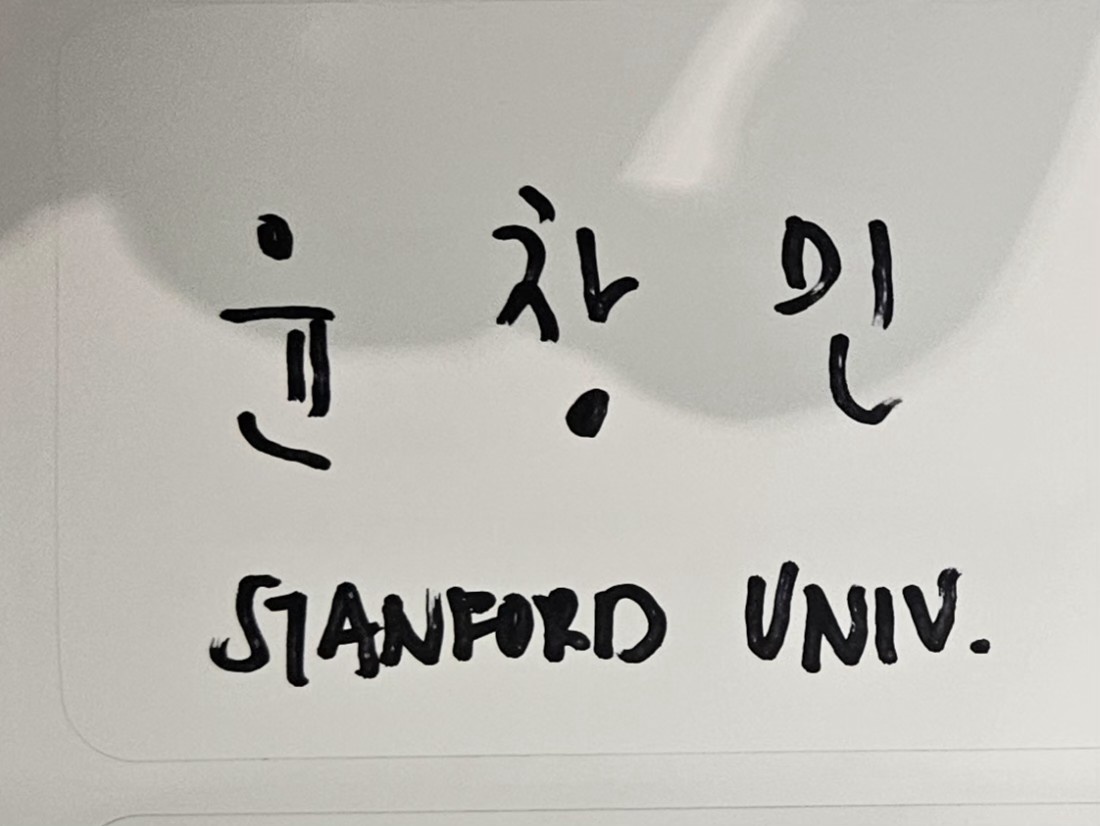 윤 창 민
STANFORD UNIV.